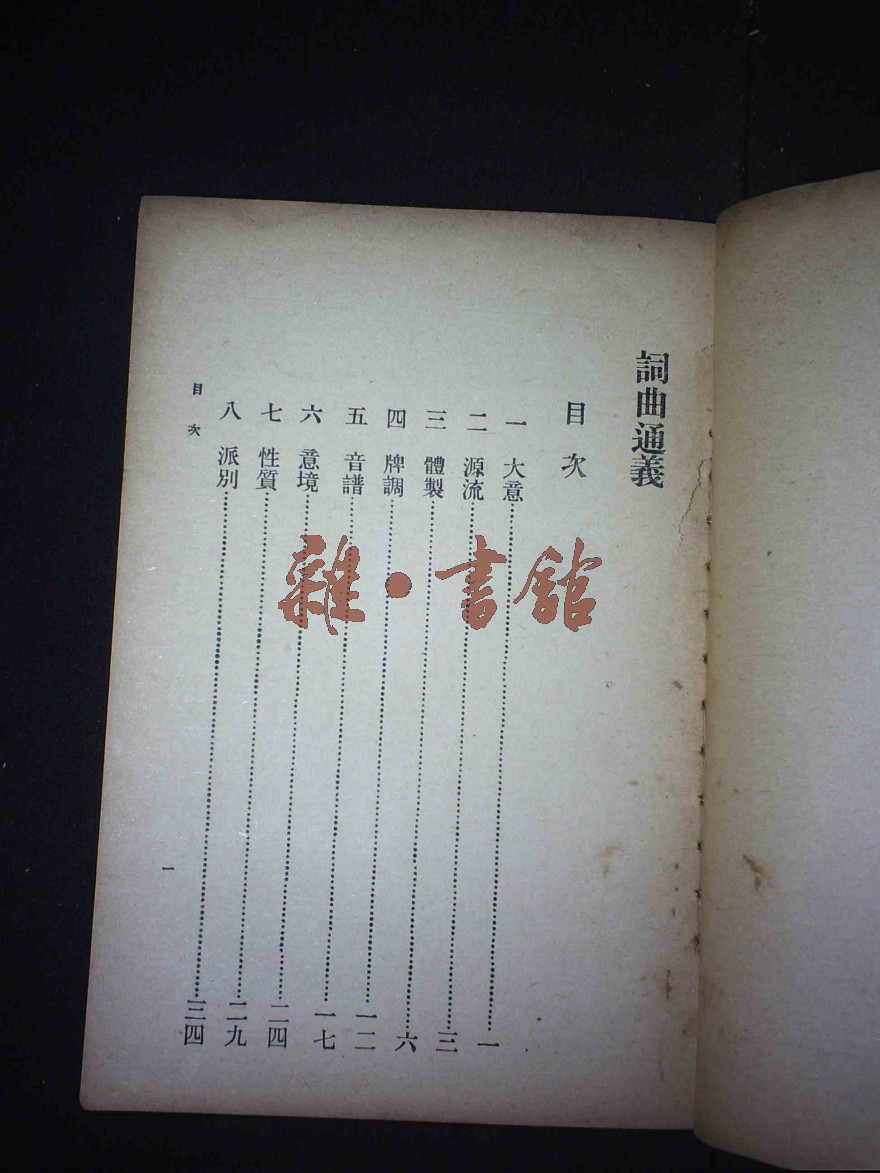 詞曲通義
目次
一 大意……一
二 源流……三
三 體製……六
四 牌調……一二
五 音譜……一七
六 意境……二四
七 性質……二九
八 派別……三四
目次
一
雜·書館